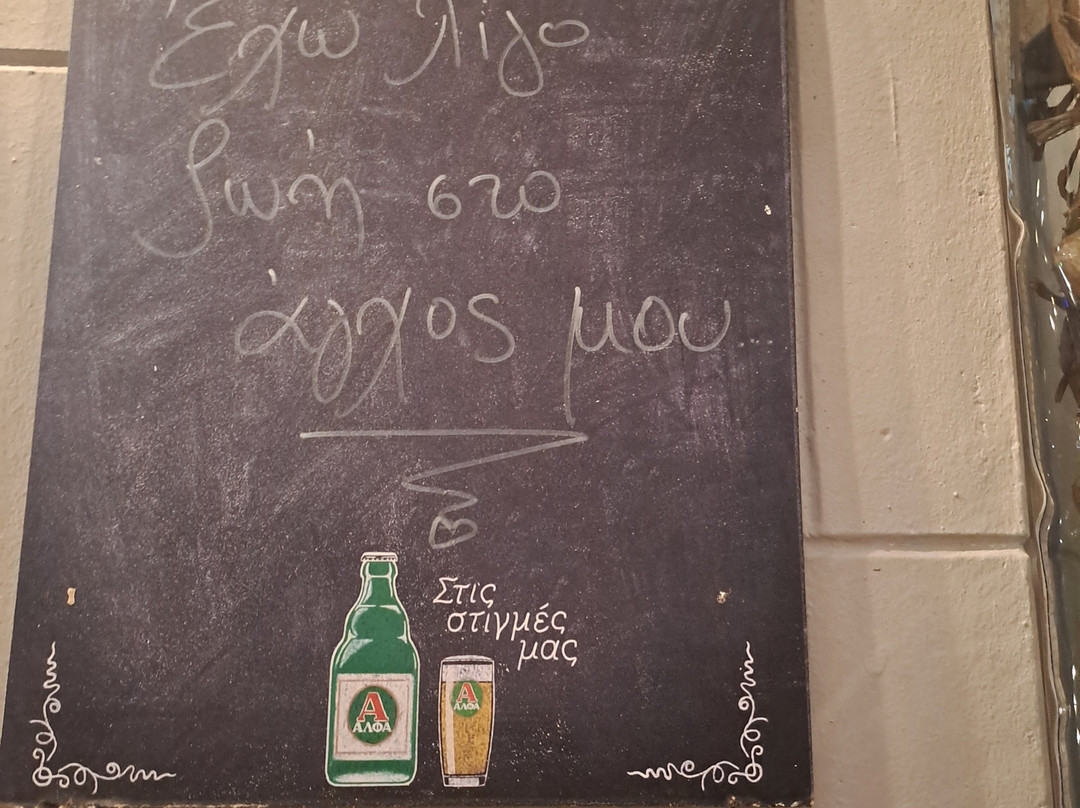 Έχω λίγο
ζωή στο
άγχος μου
Στις
στιγμές
μας
Α
ΑΛΦΑ
Α
ΑΛΦΑ